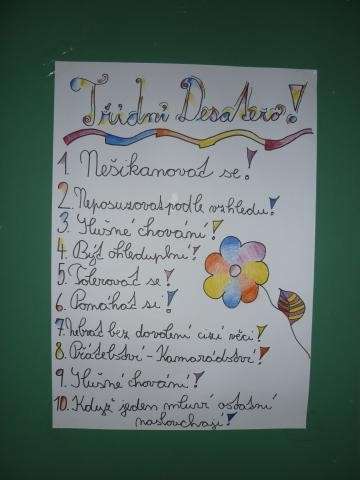 Třídní Desatero!
1. Nešikanovat se!
2. Neposuzovat podle vzhledu!
3. Slušné chování!
4. Být ohleduplní!
5. Tolerovat se!
6. Pomáhat si!
7. Nebrat bez dovolení cizí věci!
8. Přátelství - Kamarádství!
9. Slušné chování!
10. Když jeden mluví ostatní
naslouchají!